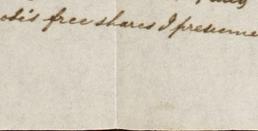 free shares I presume